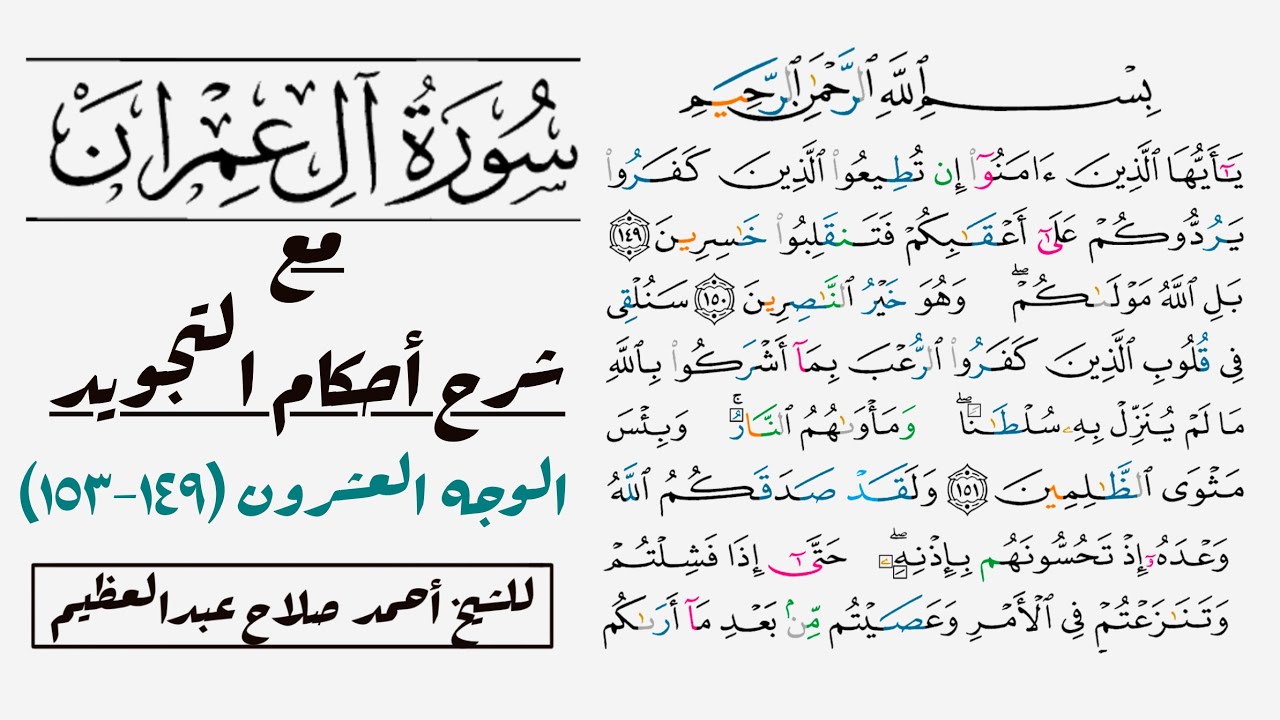 سُورَةُ آلِ عِمْرَانَ
مع
شرح أحكام التجويد
الوجه العشرون (١٤٩-١٥٣)
للشيخ أحمد صلاح عبدالعظيم
بِسْمِ ٱللَّهِ ٱلرَّحْمَٰنِ ٱلرَّحِيمِ
يَٰٓأَيُّهَا ٱلَّذِينَ ءَامَنُوٓا۟ إِن تُطِيعُوا۟ ٱلَّذِينَ كَفَرُوا۟
يَرُدُّوكُمْ عَلَىٰٓ أَعْقَٰبِكُمْ فَتَنقَلِبُوا۟ خَٰسِرِينَ ١٤٩
بَلِ ٱللَّهُ مَوْلَىٰكُمْ ۖ وَهُوَ خَيْرُ ٱلنَّٰصِرِينَ ١٥٠ سَنُلْقِى
فِى قُلُوبِ ٱلَّذِينَ كَفَرُوا۟ ٱلرُّعْبَ بِمَآ أَشْرَكُوا۟ بِٱللَّهِ
مَا لَمْ يُنَزِّلْ بِهِۦ سُلْطَٰنًا ۖ وَمَأْوَىٰهُمُ ٱلنَّارُ ۚ وَبِئْسَ
مَثْوَى ٱلظَّٰلِمِينَ ١٥١ وَلَقَدْ صَدَقَكُمُ ٱللَّهُ
وَعْدَهُۥٓ إِذْ تَحُسُّونَهُم بِإِذْنِهِۦ ۖ حَتَّىٰٓ إِذَا فَشِلْتُمْ
وَتَنَٰزَعْتُمْ فِى ٱلْأَمْرِ وَعَصَيْتُم مِّنۢ بَعْدِ مَآ أَرَىٰكُم